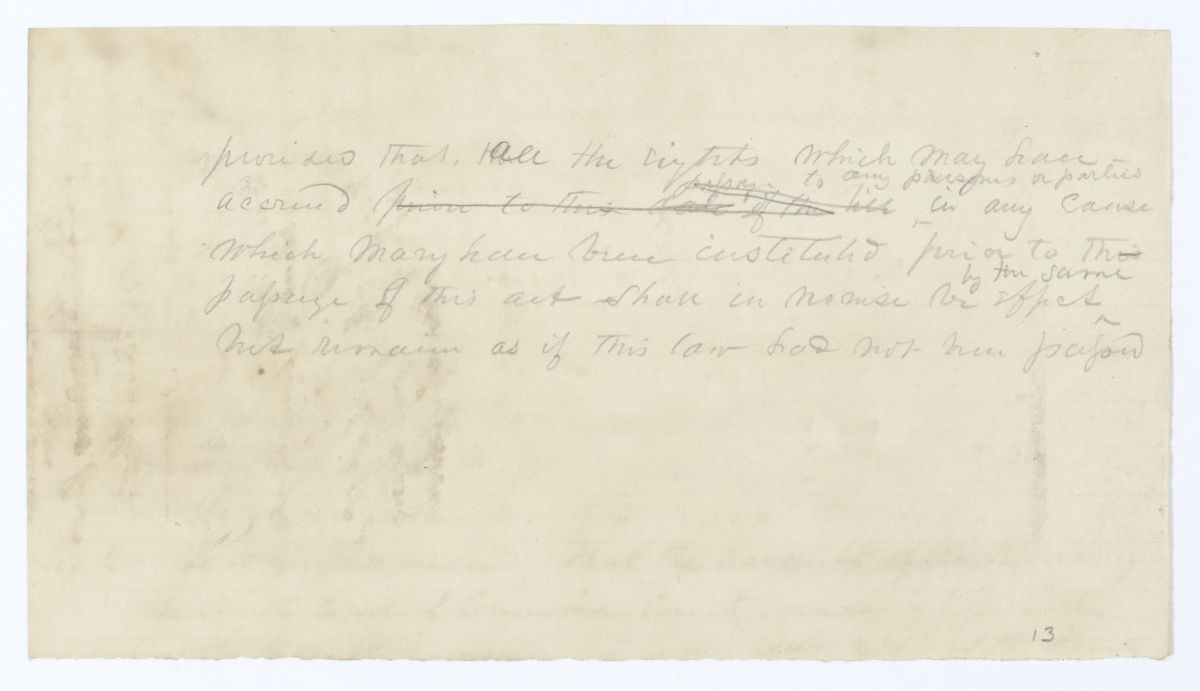 provided that, all the rights which may have
passage to any persons or parties
accrued prior to this date of the bill in any cause
which may have been instituted prior to this
by the same
passage of this act shall in nowise be effect
but remain as if this law had not been passed
13